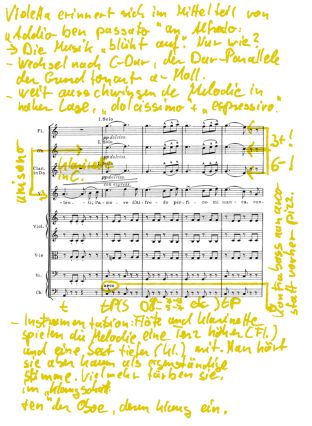 Violetta erinnert sich im Mittelteil von
"Addio del passato" an Alfredo:
→ Die Musik "blüht auf". Nur wie?
- Wechsel nach C-Dur, der Dur-Parallele
der Grundtonart a-Moll.
- weit ausschwingende Melodie in
hoher Lage, "dolcissimo" + "espressivo".
I. Solo
Fl.
I. Solo
Ob.
3↑!
Klarinette
in C!
Clar.
in Do
6-!
unisono
con espress.
V.
Viol.
Vle.
Vc.
arco
Cb.
Kontrabass nun arco
statt vorher pizz.
t
tP
- Instrumentation: Flöte und Klarinette
spielen die Melodie eine Terz höher (Fl.)
und eine Sext tiefer (Kl.) mit. Man hört
sie aber kaum als eigenständige
Stimme. Vielmehr färben sie,
im "Klangschat-
ten der Oboe, deren Klang ein.